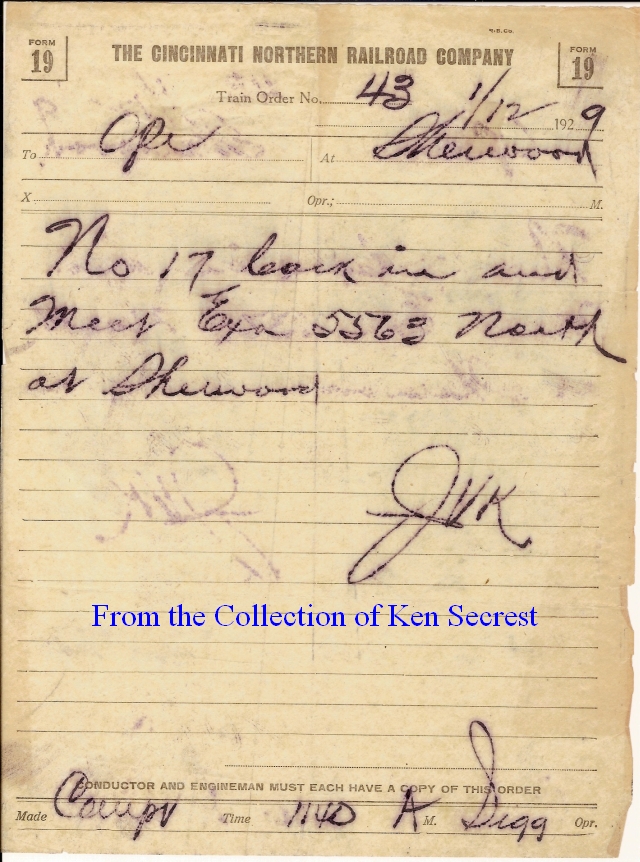 T.B.CO.
FORM 19 THE CINCINNATI NORTHERN RAILROAD COMPANY FORM 19
Train Order No. 43 1/12 1929
To Opr At Sherwood
X Opr.; M.
No 17 back in and
Meet Exa 5563 North
at Sherwood
JVK
From the Collection of Ken Secrest
CONDUCTOR AND ENGINEMAN MUST EACH HAVE A COPY OF THIS ORDER
Made Comp Time 1140 A M. Digg Opr.